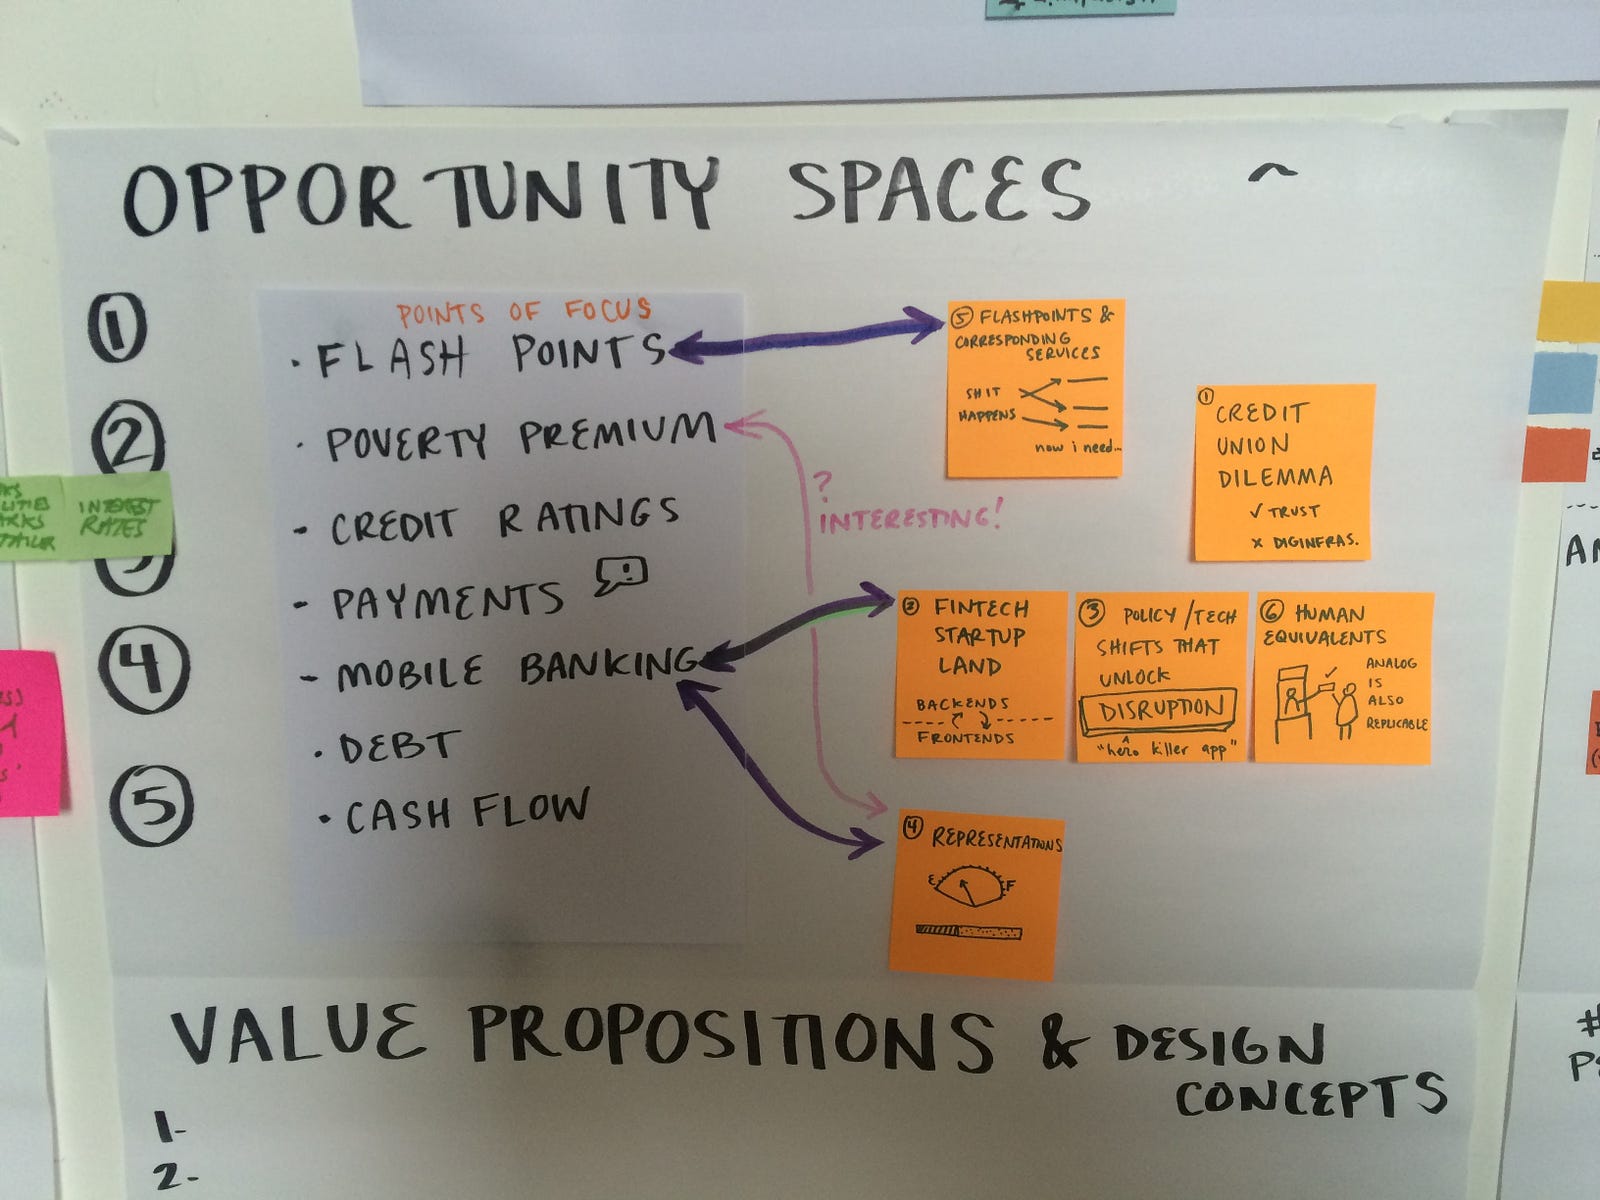 OPPORTUNITY SPACES
1
2
4
5
POINTS OF FOCUS
· FLASH POINTS
· POVERTY PREMIUM
- CREDIT RATINGS
- PAYMENTS
!
- MOBILE BANKING
· DEBT
· CASH FLOW
?
INTERESTING!
5 FLASHPOINTS &
CORRESPONDING
SERVICES
SHIT
HAPPENS
now i need...
1
CREDIT
UNION
DILEMMA
✓ TRUST
x DIGINFRAS.
2 FINTECH
STARTUP
LAND
BACKENDS
FRONTENDS
3 POLICY/TECH
SHIFTS THAT
UNLOCK
DISRUPTION
"hero killer app"
6 HUMAN
EQUIVALENTS
ANALOG
IS
ALSO
REPLICABLE
4 REPRESENTATIONS
E F
INTEREST
RATES
VALUE PROPOSITIONS & DESIGN
CONCEPTS
1-
2-